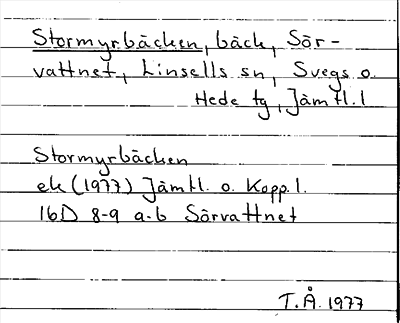 Stormyrbäcken, bäck, Sör-
vattnet, Linsells sn, Svegs o.
Hede tg, Jämtl. l
Stormyrbäcken
ek (1977) Jämtl. o. Kopp. l.
16D 8-9 a-b Sörvattnet
T.Å. 1977